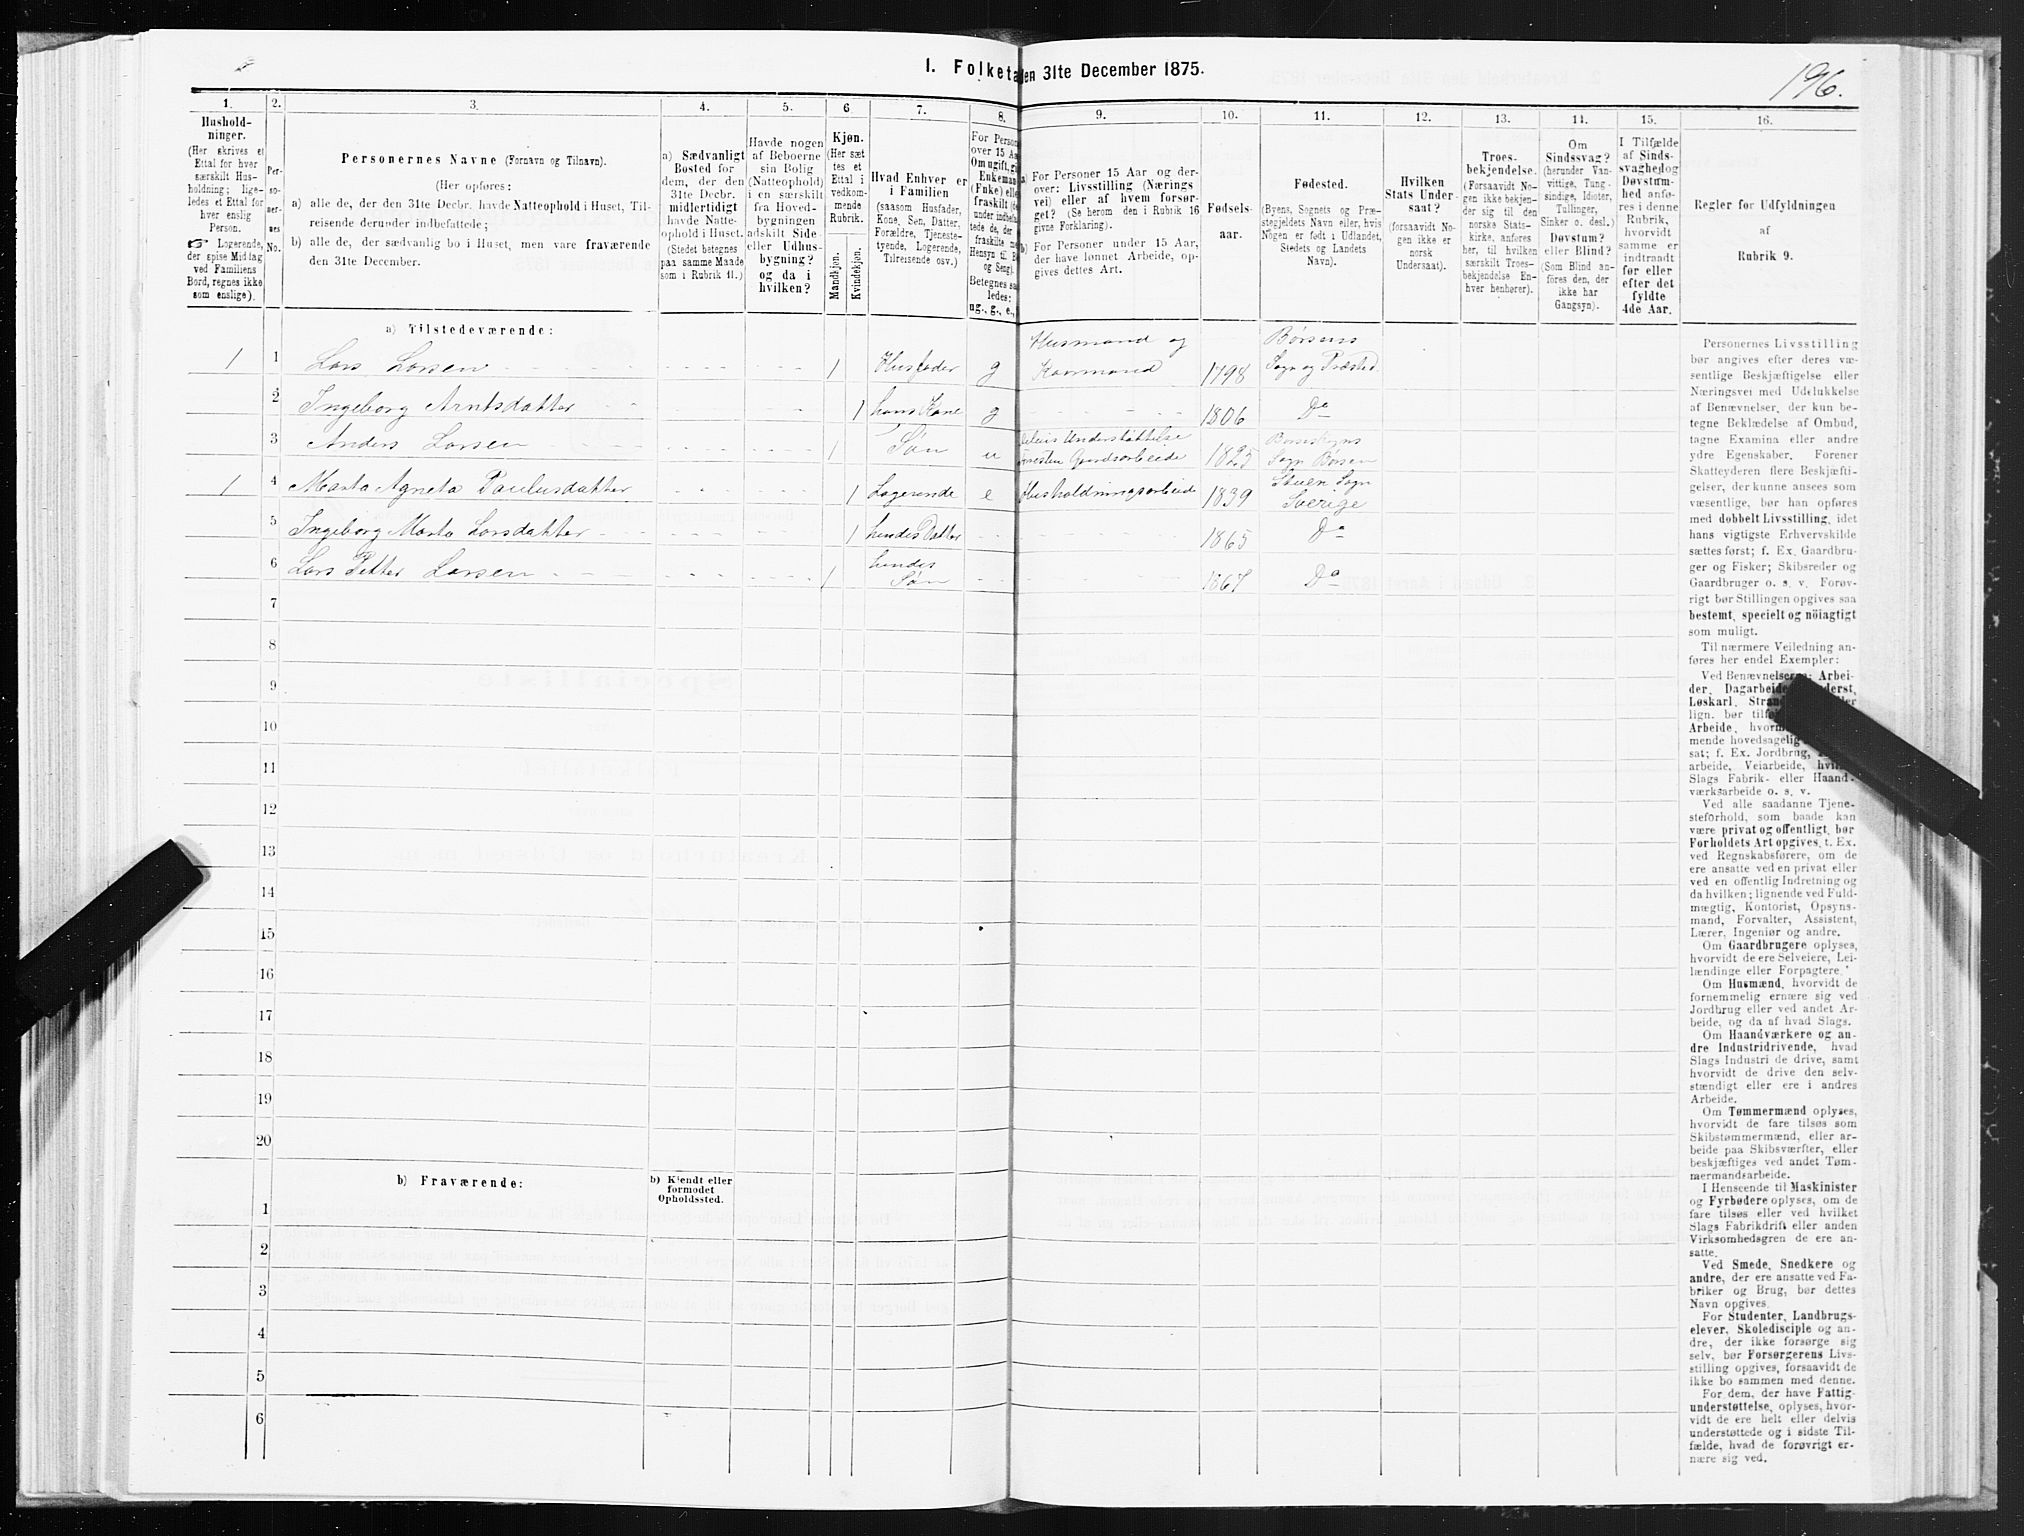 I. Folketa en 31te December 1875.
196.
1.
2.
3.
4.
5.
6
7.
8.
9.
10.
11.
12.
13.
14.
15.
16.
Hushold-
ninger.
(Her skrives et
Ettal for hver
særskilt Hus-
holdning; lige-
ledes et Ettal for
hver enslig
Person.
☞ Logerende,
der spise Middag
ved Familiens
Bord, regnes ikke
som enslige).
Per-
so-
ner-
nes
No.
Personernes Navne (Fornavn og Tilnavn).
(Her opføres:
a) alle de, der den 31te Decbr. havde Natteophold i Huset, Til-
reisende derunder indbefattede;
b) alle de, der sædvanlig bo i Huset, men vare fraværende
den 31te December.
a) Sædvanligt
Bosted for
dem, der den
31te Decbr.
midlertidigt
havde Natte-
ophold i Huset.
(Stedet betegnes
paa samme Maade
som i Rubrik 11.)
Havde nogen
af Beboerne
sin Bolig
(Natteophold)
i en særskilt
fra Hoved-
bygningen
adskilt Side-
eller Udhus-
bygning?
og da i
hvilken?
Kjøn.
(Her sæt-
tes et
Ettal i
vedkom-
mende
Rubrik.
Mandkjøn.
Kvindekjøn.
Hvad Enhver er
i Familien
(saasom Husfader,
Kone, Søn, Datter,
Forældre, Tjeneste-
tyende, Logerende,
Tilreisende osv.)
For Person
over 15 Aa
Om ugift, gi
Enkeman
(Enke) elle
fraskilt (de
under indbefat-
tede de, der
fraskilte m
Hensyn til B
og Seng).
Betegnes sa
ledes:
ug., g., e.,
a) For Personer 15 Aar og der-
over: Livsstilling (Nærings-
vei) eller af hvem forsør-
get? (Se herom den i Rubrik 16
givne Forklaring).
b) For Personer under 15 Aar,
der have lønnet Arbeide, op-
gives dettes Art.
Fødsels-
aar.
Fødested.
(Byens, Sognets og Præ-
stegjeldets Navn eller, hvis
Nogen er født i Udlandet,
Stedets og Landets
Navn).
Hvilken
Stats Under-
saat?
(forsaavidt No-
gen ikke er
norsk
Undersaat).
Troes-
bekjendelse.
(Forsaavidt No-
gen ikke bekjen-
der sig til den
norske Stats-
kirke, anføres
her, til hvilken
særskilt Troes-
bekjendelse En-
hver henhører).
Om
Sindssvag?
(herunder Van-
vittige, Tung-
sindige, Idioter,
Tullinger,
Sinker o. desl.)
Døvstum?
eller Blind?
(Som Blind an-
føres den, der
ikke har
Gangsyn).
I Tilfælde
af Sinds-
svaghed og
Døvstum-
hed anfø-
res i denne
Rubrik,
hvorvidt
samme er
indtraadt
før eller
efter det
fyldte
4de Aar.
Regler for Udfyldningen
af
Rubrik 9.
a) Tilstedeværende:
1 1 Lars Larsen 1 Husfader g Husmand og Kaarmand 1798 Børsens Sogn og Præsted
2 Ingeborg Arntsdatter 1 hans Kone g 1806 Do
3 Anders Larsen 1 Søn u Delvis Understøttelse Forresten Gaardsarbeide 1825 Sogn Børsen
1 4 Marta Agneta Paulusdatter 1 Logerende e Husholdningsarbeide 1839 Stuen Sogn Sverige
5 Ingeborg Marta Larsdatter 1 hendes Datter 1865 Do
6 Lars Petter Larsen 1 hendes Søn 1867 Do
7
8
9
10
11
12
13
14
15
16
17
18
19
20
b) Fraværende:
b) Kjendt eller
formodet
Opholdssted.
1
2
3
4
5
6
Personernes Livsstilling
bør angives efter deres væ-
sentlige Beskjæftigelse eller
Næringsvei med Udelukkelse
af Benævnelser, der kun be-
tegne Beklædelse af Ombud,
tagne Examina eller andre
ydre Egenskaber. Forener
Skatteyderen flere Beskjæfti-
gelser, der kunne ansees som
væsentlige, bør han opføres
med dobbelt Livsstilling, idet
hans vigtigste Erhvervskilde
sættes først; f. Ex. Gaardbru-
ger og Fisker; Skibsreder og
Gaardbruger o. s. v. Forøv-
rigt bør Stillingen opgives saa
bestemt, specielt og nöiagtigt
som muligt.
Til nærmere Veiledning an-
føres her endel Exempler:
Ved Benævnelserne: Arbei-
der, Dagarbeide derst,
Løskarl, Stran ller
lign. bør tilfø
Arbeide, hvorm
mende hovedsagelig
sat; f. Ex. Jordbrug,
arbeide, Veiarbeide, hvil
Slags Fabrik- eller Haand-
værksarbeide o. s. v.
Ved alle saadanne Tjene-
steforhold, som baade kan
være privat og offentligt, bør
Forholdets Art opgives, t. Ex.
ved Regnskabsførere, om de
ere ansatte ved en privat eller
ved en offentlig Indretning og
da hvilken; lignende ved Fuld-
mægtig, Kontorist, Opsyns-
mand, Forvalter, Assistent,
Lærer, Ingeniør og andre.
Om Gaardbrugere oplyses,
hvorvidt de ere Selveiere, Lei-
lændinge eller Forpagtere.
Om Husmænd, hvorvidt de
fornemmelig ernære sig ved
Jordbrug eller ved andet Ar-
beide, og da af hvad Slags.
Om Haandværkere og an-
dre Industridrivende, hvad
Slags Industri de drive, samt
hvorvidt de drive den selv-
stændigt eller ere i andres
Arbeide.
Om Tømmermænd oplyses,
hvorvidt de fare tilsøs som
Skibstømmermænd, eller ar-
beide paa Skibsværfter, eller
beskjæftiges ved andet Tøm-
mermandsarbeide.
I Henseende til Maskinister
og Fyrbødere oplyses, om de
fare tilsøs eller ved hvilket
Slags Fabrikdrift eller anden
Virksomhedsgren de ere an-
satte.
Ved Smede, Snedkere og
andre, der ere ansatte ved Fa-
briker og Brug, bør dettes
Navn opgives.
For Studenter, Landbrugs-
elever, Skoledisciple og an-
dre, der ikke forsørge sig
selv, bør Forsørgerens Livs-
stilling opgives, forsaavidt de
ikke bo sammen med denne.
For dem, der have Fattig-
understøttelse, oplyses, hvor-
vidt de ere helt eller delvis
understøttede og i sidste Til-
fælde, hvad de forøvrigt er-
nære sig ved.